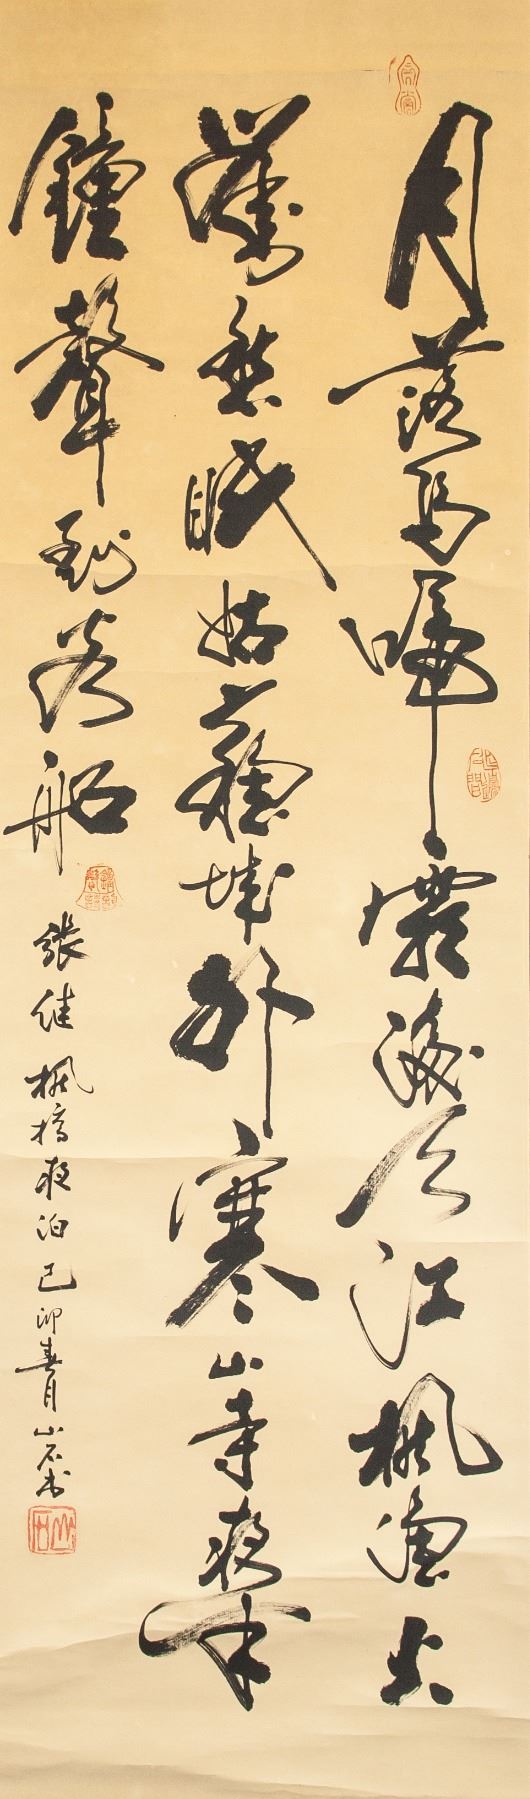 月落烏啼霜滿天江楓漁火
對愁眠姑蘇城外寒山寺夜半
鐘聲到客船 張継楓橋夜泊 己卯春月 山石書
山石